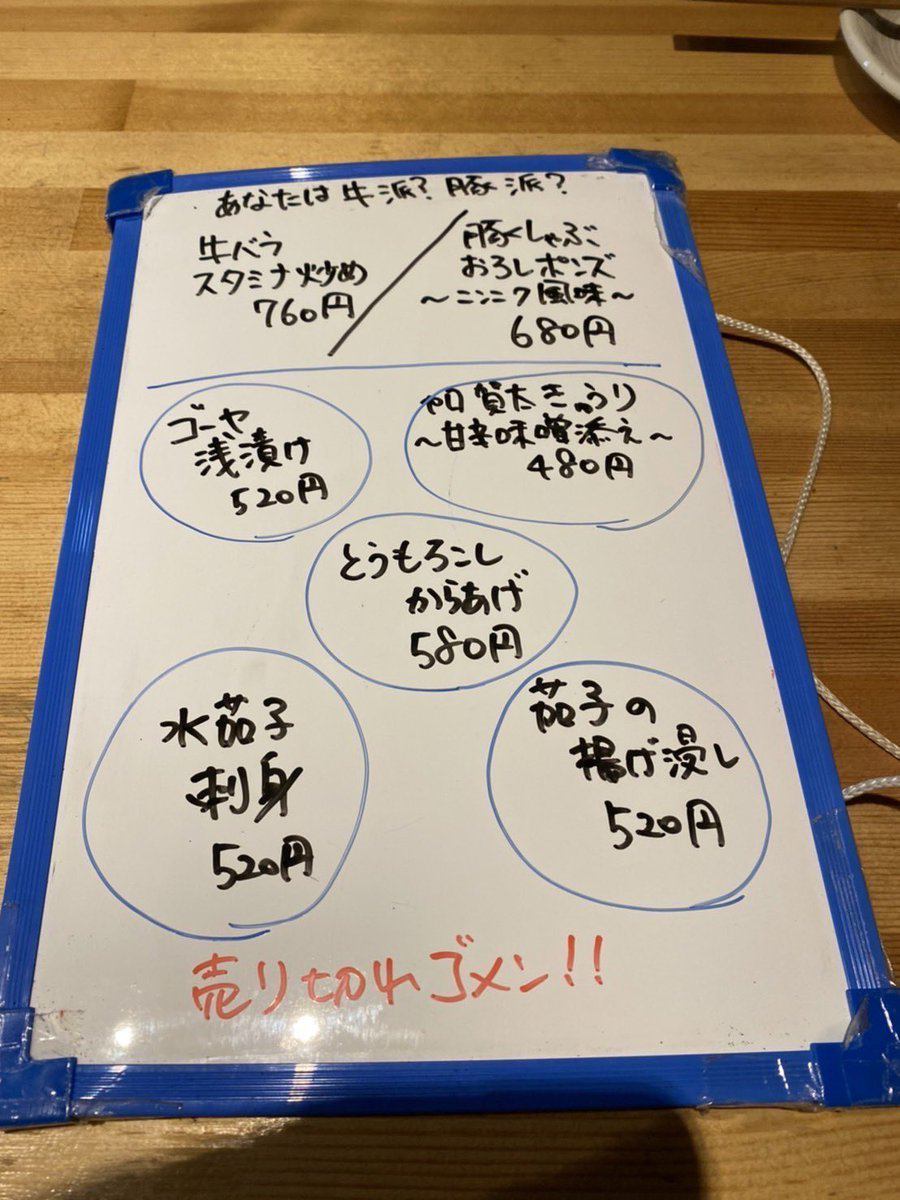 あなたは牛派？豚派？
牛バラ
スタミナ炒め
760円
豚しゃぶ
おろしポンズ
～ニンニク風味～
680円
ゴーヤ
浅漬け
520円
加賀太きゅうり
～甘辛味噌添え～
480円
とうもろこし
からあげ
580円
水茄子
刺身
520円
茄子の
揚げ浸し
520円
売り切れゴメン!!